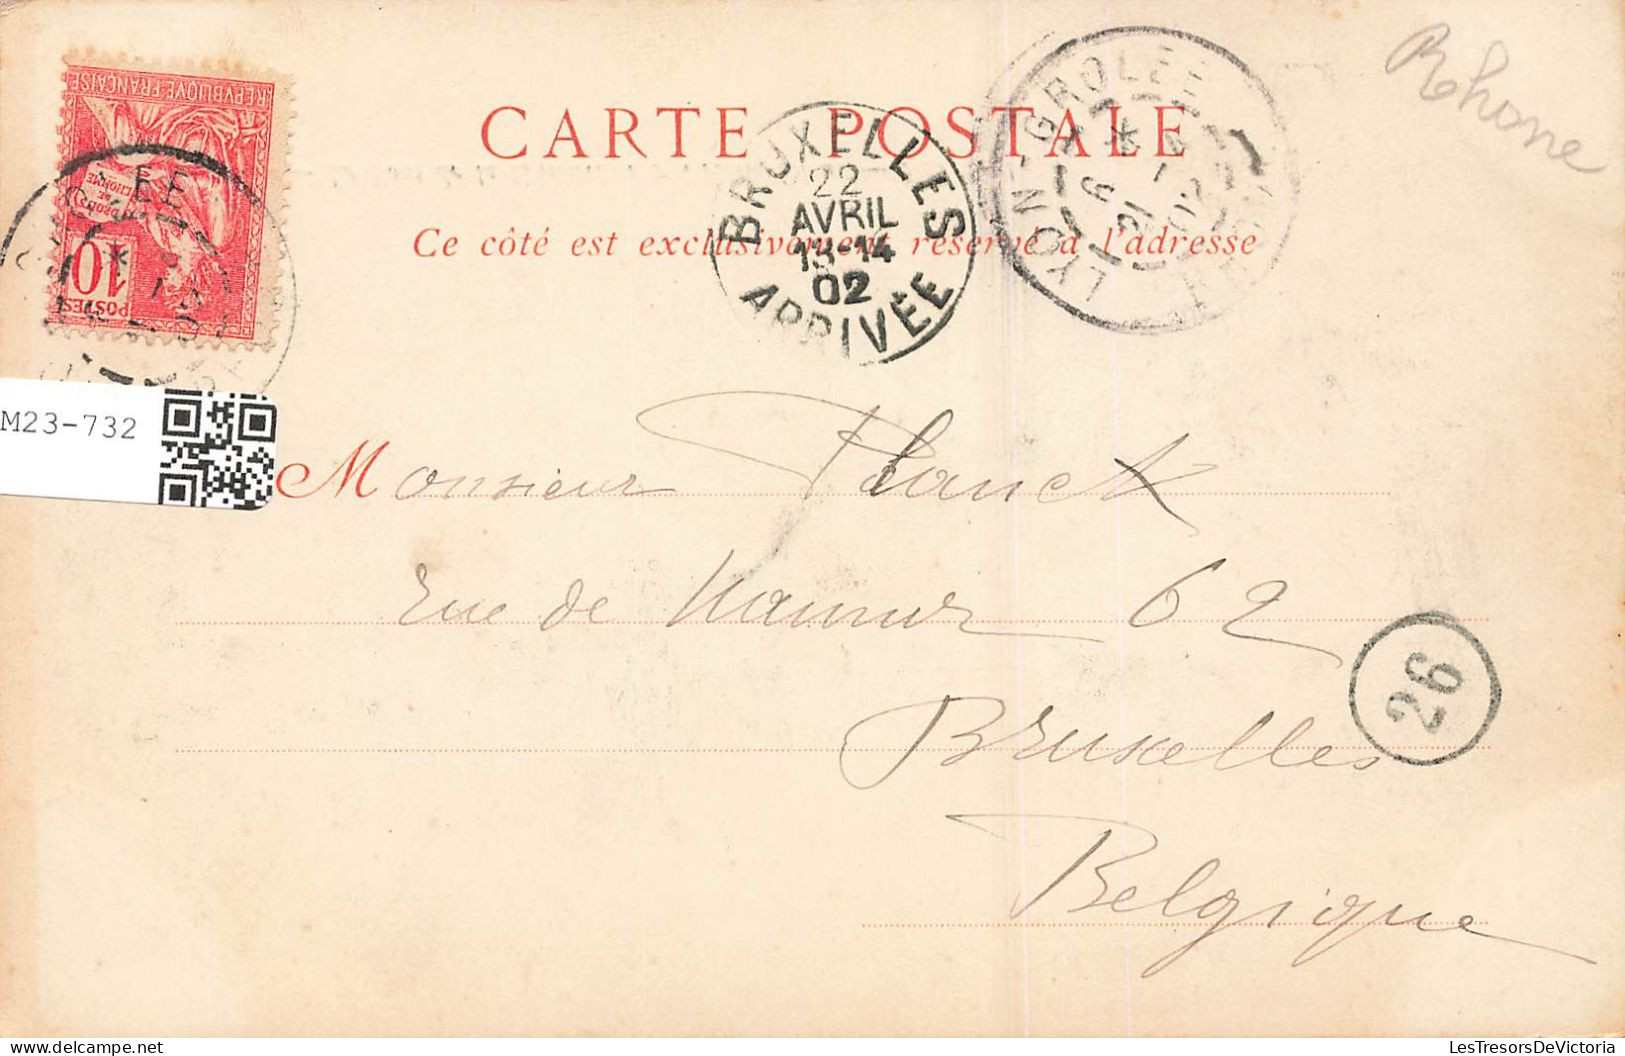 Rhone
REPVBLIQVE FRANÇAISE
DROITS DE L'HOMME
10
POSTES
CARTE POSTALE
LYON-GROLÉE
BRUXELLES
22
AVRIL
13-14
02
ARRIVÉE
Ce côté est exclusivement réservé à l'adresse
M23-732
Monsieur Planck
Rue de Namur 62
26
Bruxelles
Belgique
LesTresorsDeVictoria